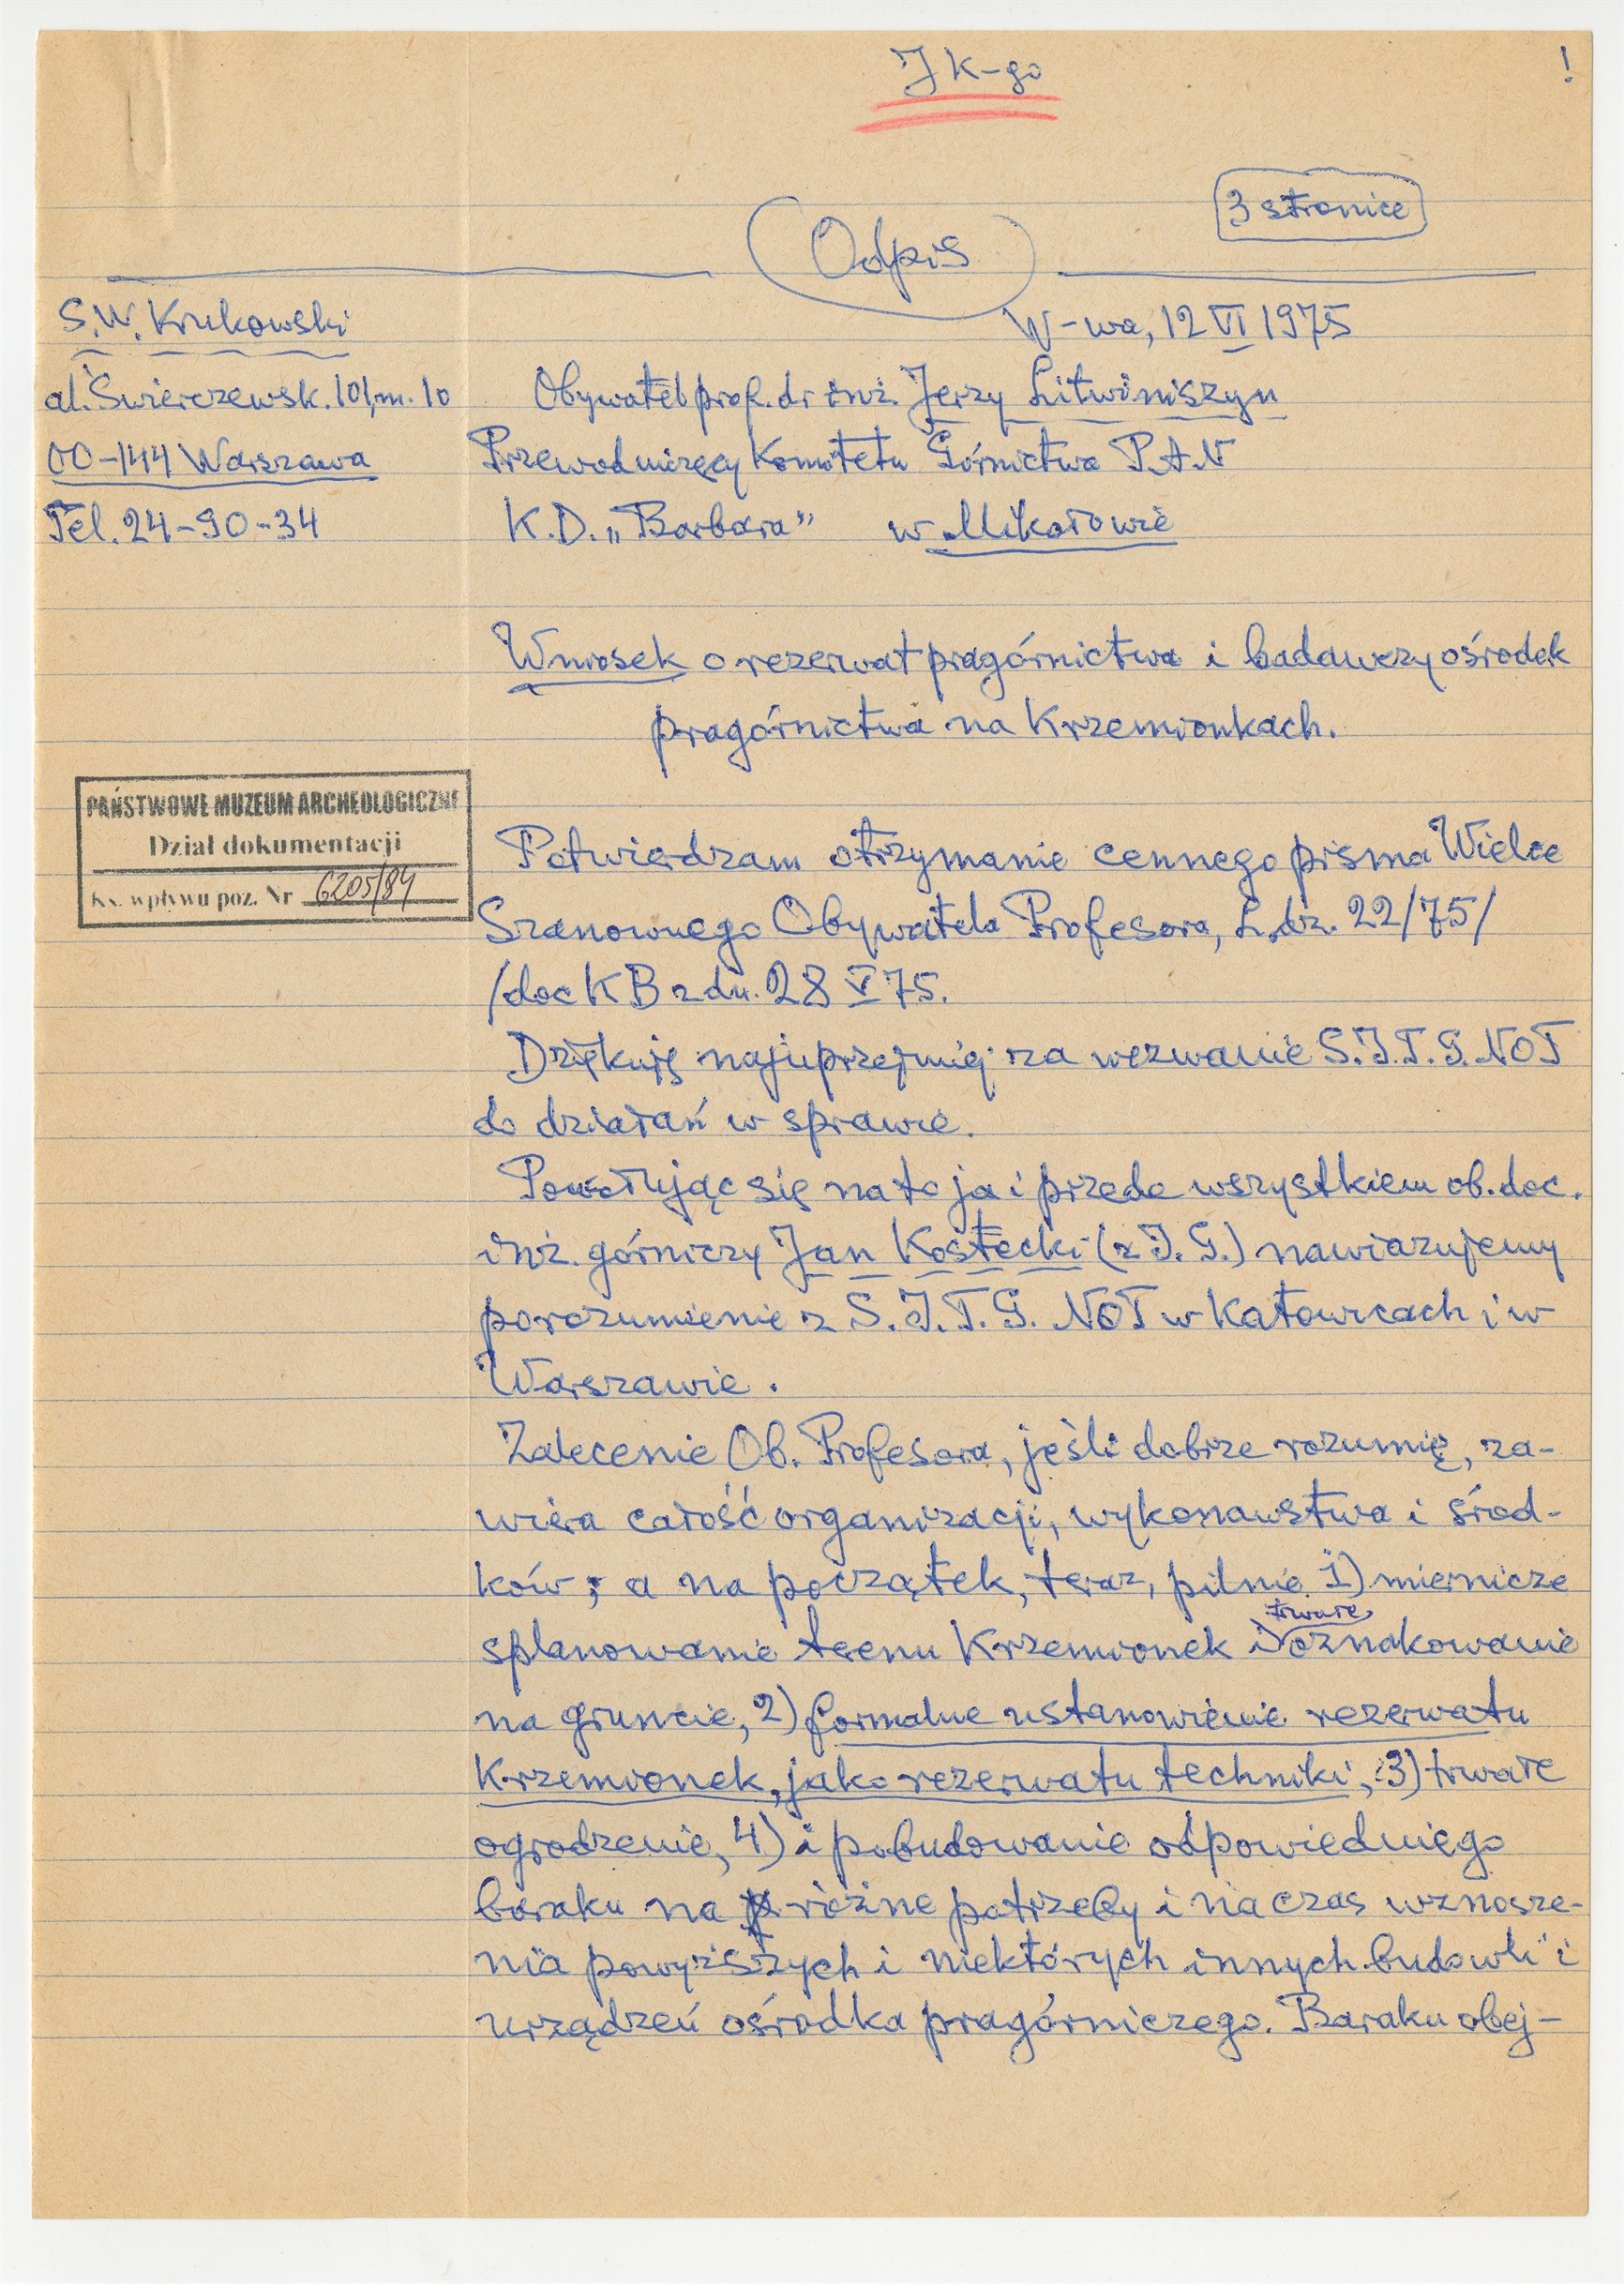 J K-go
!
3 stronice
Odpis
S.W. Krukowski
al. Świerczewsk. 101, m. 10
00-144 Warszawa
Tel. 24-90-34
W-wa, 12 VI 1975
Obywatel prof. dr inż. Jerzy Litwiniszyn
Przewodniczący Komitetu Górnictwa P.A.N
K.D. „Barbara” w Mikołowie
Wniosek o rezerwat pragórnictwa i badawczy ośrodek
pragórnictwa na Krzemionkach.
PAŃSTWOWE MUZEUM ARCHEOLOGICZNE
Dział dokumentacji
Ks. wpływu poz. Nr 6205/84
Potwierdzam otrzymanie cennego pisma Wielce
Szanownego Obywatela Profesora, L.dz. 22/75/
/doc KB z dn. 28 V 75.
Dziękuję najuprzejmiej za wezwanie S.I.T.G. NOT
do działań w sprawie.
Powołując się na to ja i przede wszystkiem ob. doc.
inż. górniczy Jan Kostecki (z I.G.) nawiazujemy
porozumienie z S.I.T.G. NOT w Katowicach i w
Warszawie.
Zalecenie Ob. Profesora, jeśli dobrze rozumię, za-
wiera całość organizacji, wykonawstwa i środ-
ków, a na początek, teraz, pilnie 1) miernicze
splanowanie terenu Krzemionek i trwałe oznakowanie
na gruncie, 2) formalne ustanowienie rezerwatu
Krzemionek, jako rezerwatu techniki, 3) trwałe
ogrodzenie, 4) i pobudowanie odpowiedniego
baraku na różne potrzeby i na czas wznosze-
nia powyższych i niektórych innych budowli i
urządzeń ośrodka pragórniczego. Baraku obej-